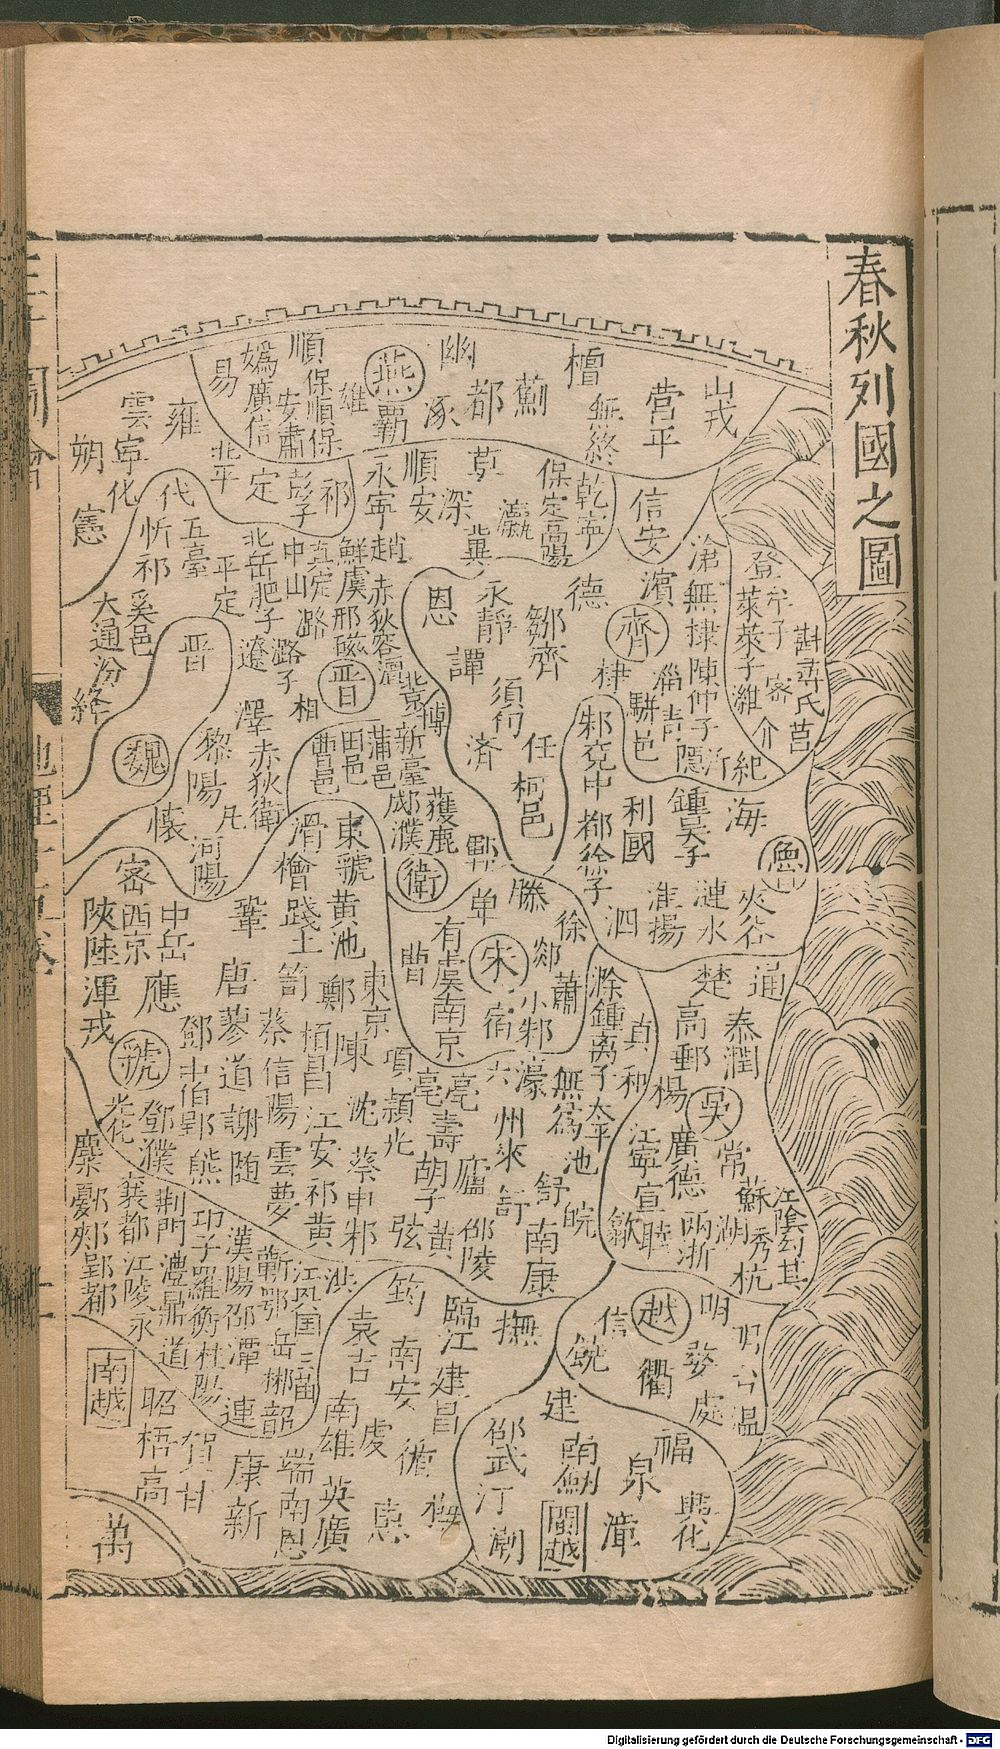 春秋列國之圖
山戎
營平
檀
無終
薊
幽
都
涿
燕
霸
雄
順
保順保
安肅
嬀廣信
易
雍
雲
寧化
朔
憲
北平
定
彭子
祁
永寧
順安
深
莫
瀛
冀
保定高陽
乾寧
信安
滄無棣陳仲子
濱
德
齊
棣
淄青
駢邑
登
萊萊子濰
密
介
莒
斟尋氏
紀
隱
永靜
鄒齊
恩
譚
須句
済
任
柯邑
趙
赤狄容
鮮虞邢磁
晉
真定
中山
北岳肥子
潞
潞子
遼
平定
代
五臺
忻
祁
奚邑
大通汾
絳
晉
魏
相
澤
赤狄衛
黎陽
凡
懷
河陽
博
新臺邶濮
獲鹿
衛
蒲邑
田邑
曹邑
滑檜踐土
東虢黃池
鄭
東京
陳
鞏
密
西京
中岳
應
陝陸渾戎
虢
唐蓼道謝随
蔡信陽雲夢
鄧
申伯郢熊
鄧濮
光化
麇
襄都江陵永
荆門澧鼎道
邛子羅衡桂陽
漢陽邵潭連
蘄鄂岳郴韶
江安祁黃
沈
蔡申邾
項
潁光
亳
亳壽
胡子
弦
黃
廬
邵陵
六
州來
濠
舒
無為池
皖
南康
滕
單
郯
徐
蕭
小邾
宿
宋
有虞南京
曹
邾兗申都徐子
利國
鍾吳子
海
魯
夾谷
漣水
淮揚
泗
滁鍾离子太平
真和
江寧宣睦
歙
楚
高郵
楊
通
泰潤
吳
廣德
常
蘇
湖
秀
杭
江陰
兩浙
越
明
婺
處
台
温
衢
信
饒
撫
建
邵武汀潮
福
泉
漳
興化
閩越
臨江
建昌
筠
南安
袁吉
洪
虔
南雄英廣
循
梅
惠
端南恩
康新
賀
昭梧高
南越
萬
Digitalisierung gefördert durch die Deutsche Forschungsgemeinschaft - DFG